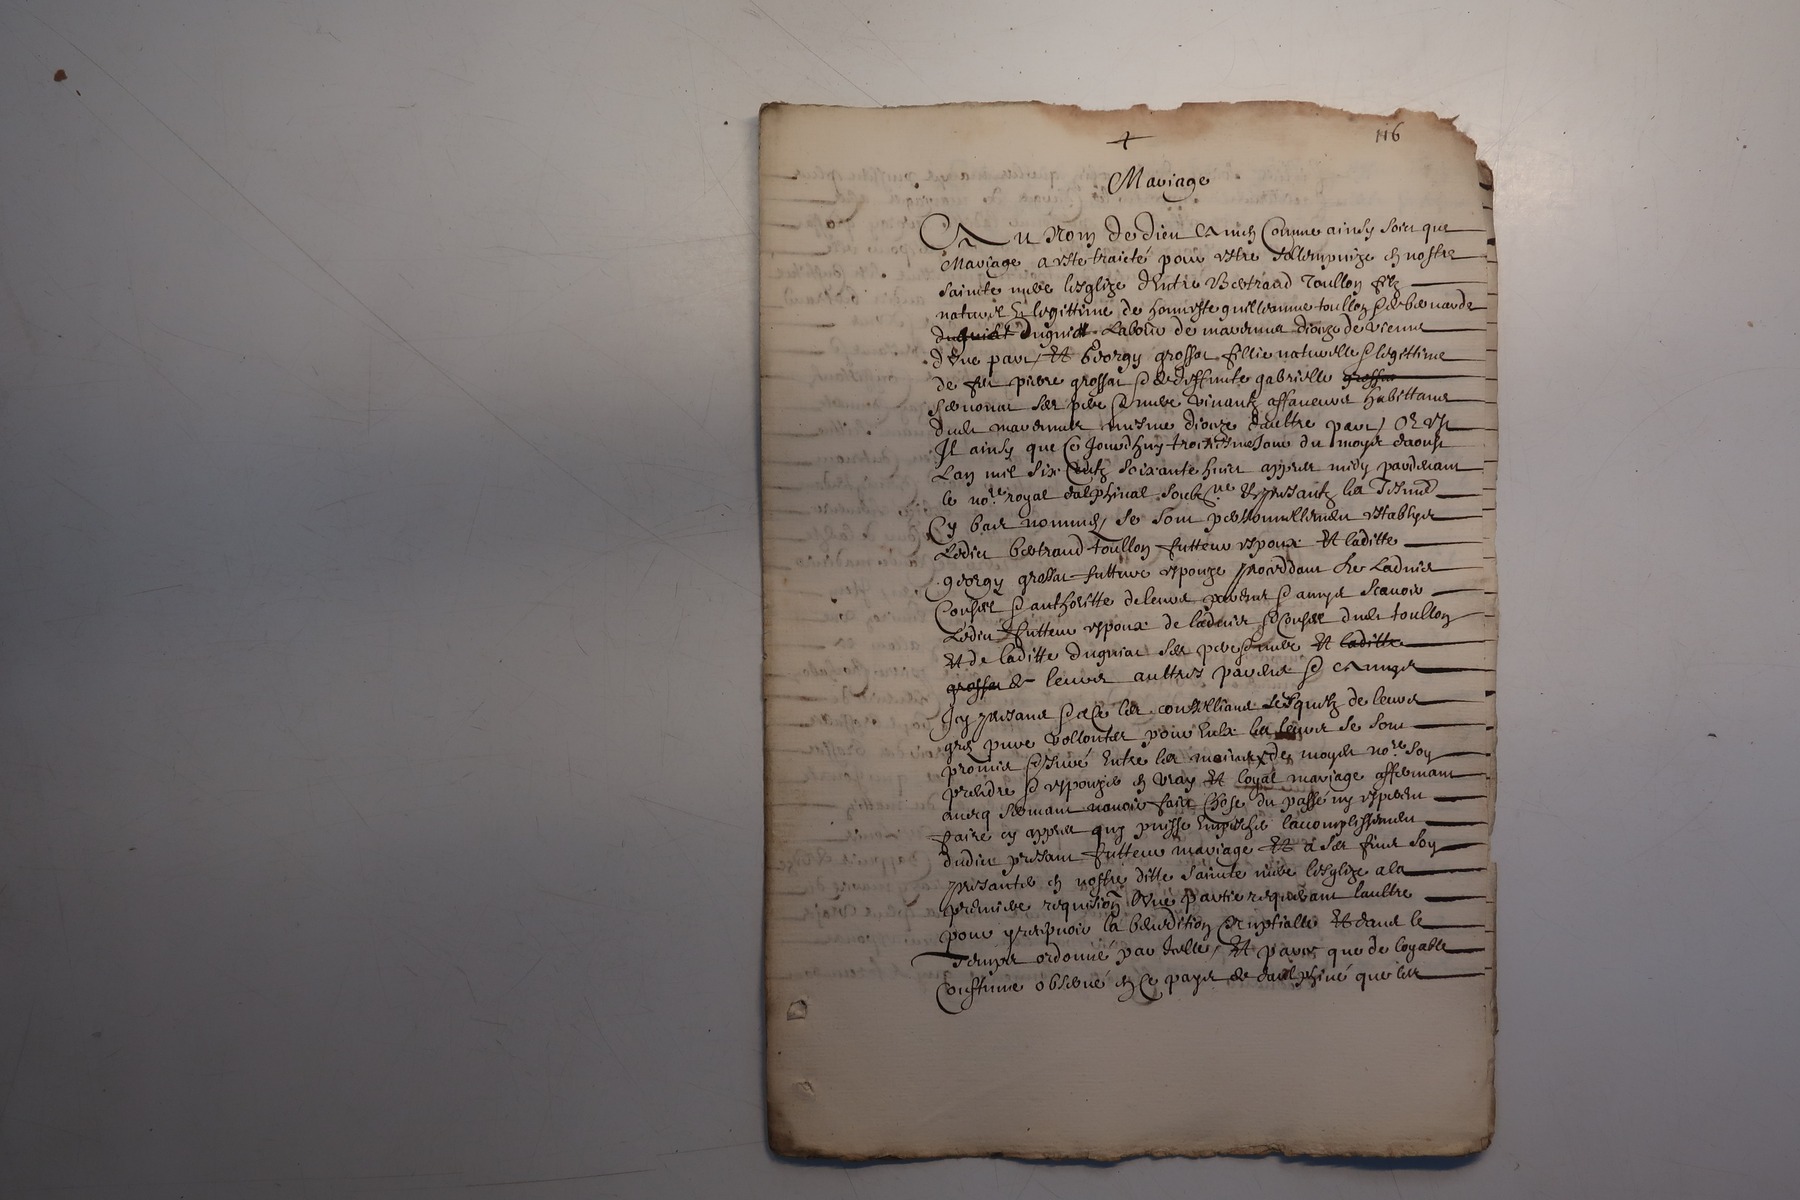 +
116
Mariage
Au Nom de dieu Amen Comme ainsy soict que
Mariage a este traicté pour estre sollempnize en nostre
saincte mere lesglize dEntre Bertrand Toullon filz
naturel & legittime de honneste guilleaume toullon & bernarde
duguict labour de diocze de vienne
dUne part, Et Georgy grossat fillie naturelle & legittime
de feu pierre grossat & de deffuncte gabrielle grossat
ses pere & mere vivantz affaneurs habittans
dud mesme diocze daultre part, Or Est
Il ainsy que Ce Jourdhuy troiziesme Jour du moys daoust
Lan mil six Centz soixante huict appres midy pardevant
le nore royal dalphinal soubzne & presantz les Tesmd
Cy bas nommes, se sont personnellement establys
Ledict bertrand toullon futteur espoux Et laditte
georgy grossat futture espouze proceddant de Ladvis
Conseil & authoritte de leurs parens & amys scavoir
Ledict futteur espoux de ladvis & Conseil dud toullon
Et de laditte duguiat ses pere & mere Et laditte
grossat de leurs aultres parens & Amys
Icy presans & ce les conseillians Lesquelz de leurs
gres pure vollontes pour Eulx les leurs se sont
promis & Juré Entre les mains de moyd nore soy
prendre & espouzer en vray Et loyal mariage affermant
avecq sermant navoir faict Chose du passé ny esperer
faire cy appres quy puisse Empecher lacomplissement
dudict presant futteur mariage Et a ses fins soy
presanter en nostre ditte saincte mere lesglize a la
premiere requision lUne partie requerant laultre
pour y rescepvoir la benediction Nuptialle Et dans le
Temps ordonné par Icelle, Et parce que de loyable
Coustume observé en Ce pays de daulphiné que les